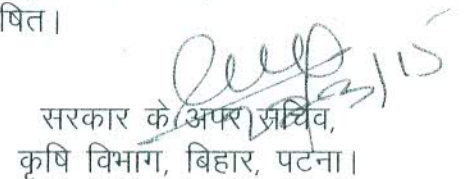 षित।
सरकार के (अपर) सचिव,
कृषि विभाग, बिहार, पटना।